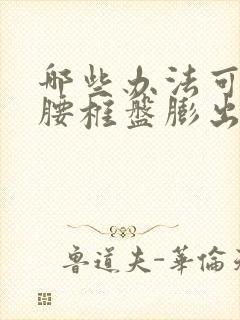 哪些办法可
腰椎盘膨出
鲁道夫-華倫